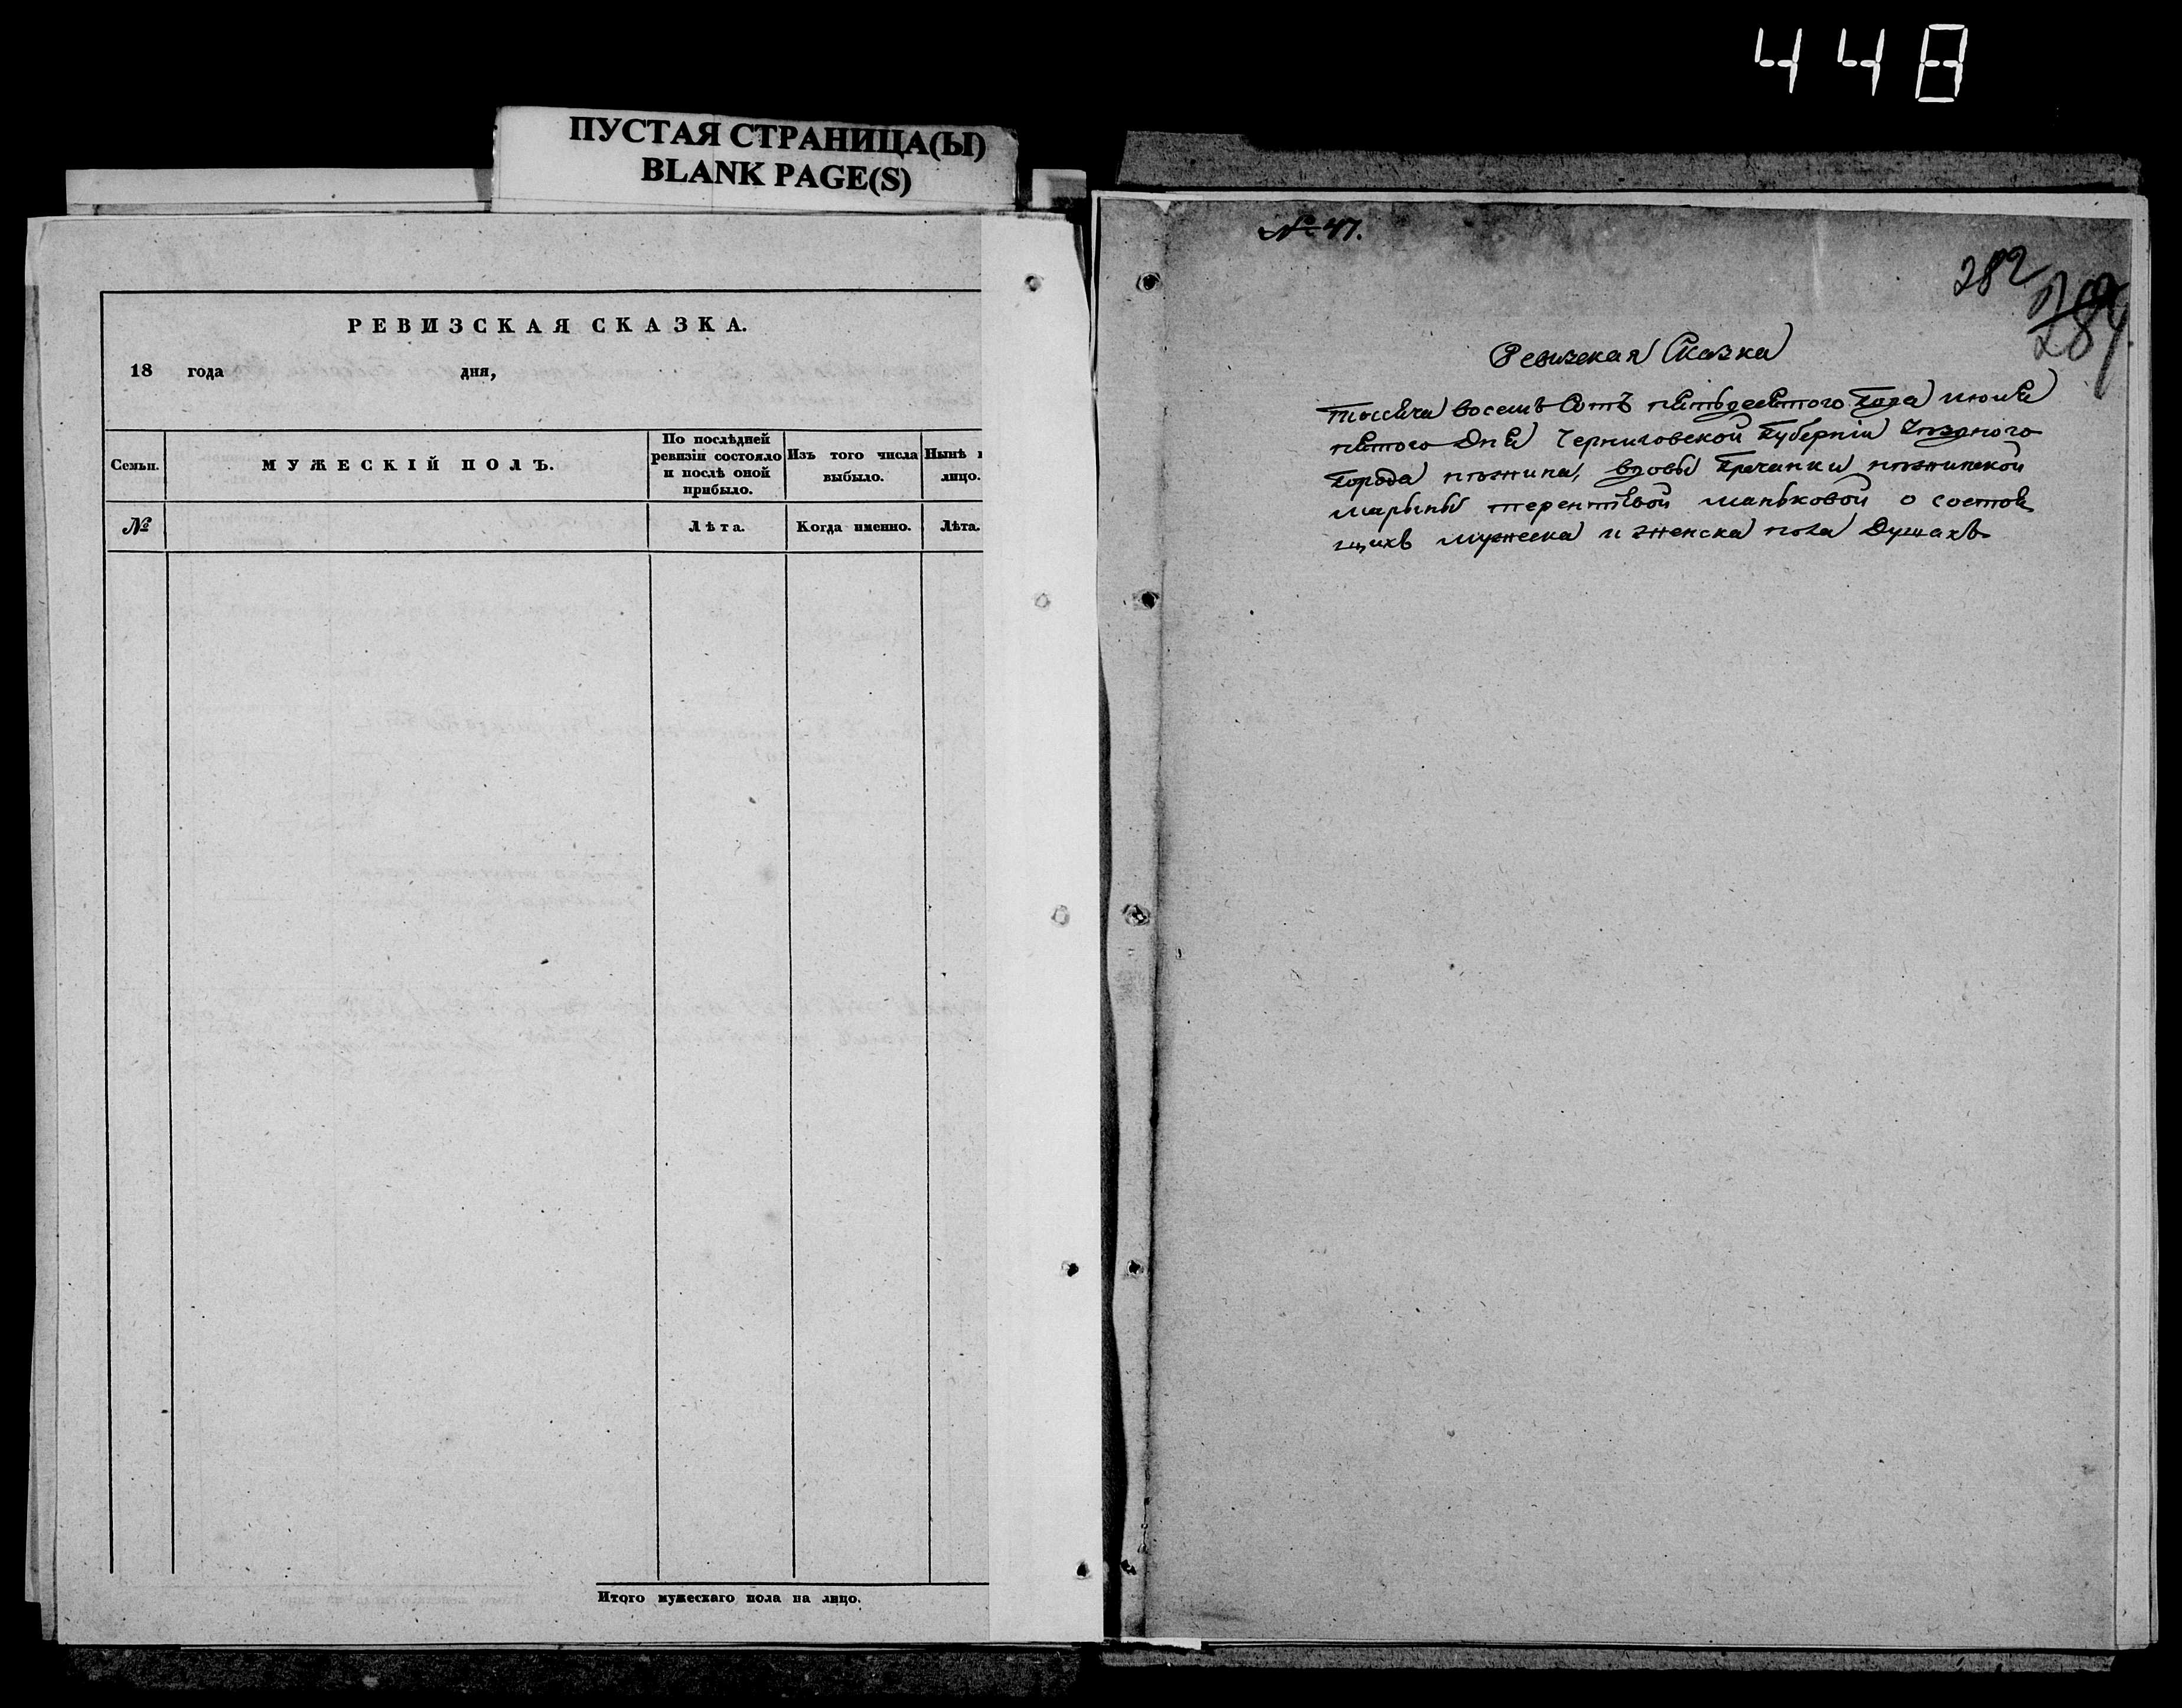 448
ПУСТАЯ СТРАНИЦА(Ы)
BLANK PAGE(S)
РЕВИЗСКАЯ СКАЗКА.
18 года дня,
Семьи.
МУЖЕСКІЙ ПОЛЪ.
По послѣдней
ревизіи состояло
и послѣ оной
прибыло.
Изъ того числа
выбыло.
Нынѣ н
лицо.
№
Лѣта.
Когда именно.
Лѣта.
Итого мужескаго пола на лицо.
№ 47.
282
284
Ревизская Сказка
тысяча восемь Сотъ пятьдесятого Года июня
пятого Дня Черниговской Губерніи Уѣзного
Города нѣжина, вдовы Гречанки нѣжинской
марыны терентіевой маньковой о состоя
щихъ мужеска и женска пола Душахъ